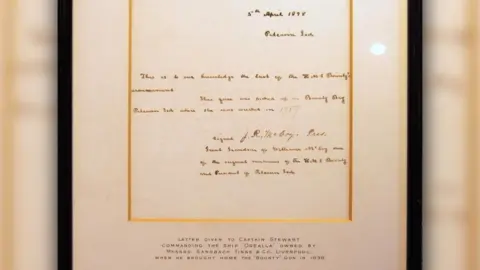 5th April 1898
Pitcairn Isld
This is to acknowledge the last of the H.M.S Bounty's
armament. This gun was picked up in Bounty Bay
Pitcairn Isld where she was wrecked in
signed J. R. McCoy. Pres.
Great Grandson of William McCoy one
of the original mutineers of the H.M.S Bounty
and President of Pitcairn Isld
LETTER GIVEN TO CAPTAIN STEWART
COMMANDING THE SHIP OWNED BY
MESSRS. SANDBACH TINNE & CO. LIVERPOOL.
WHEN HE BROUGHT HOME THE 'BOUNTY' GUN IN 1898